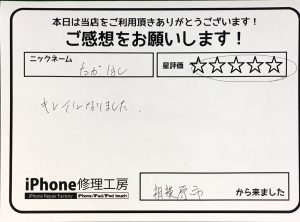 本日は当店をご利用頂きありがとうございます！
ご感想をお願いします！
ニックネーム
たかはし
星評価 ☆☆☆☆☆
キレイになりました。
iPhone修理工房
iPhone Repair Factory iPhone/iPad/iPod touch
相模原市 から来ました